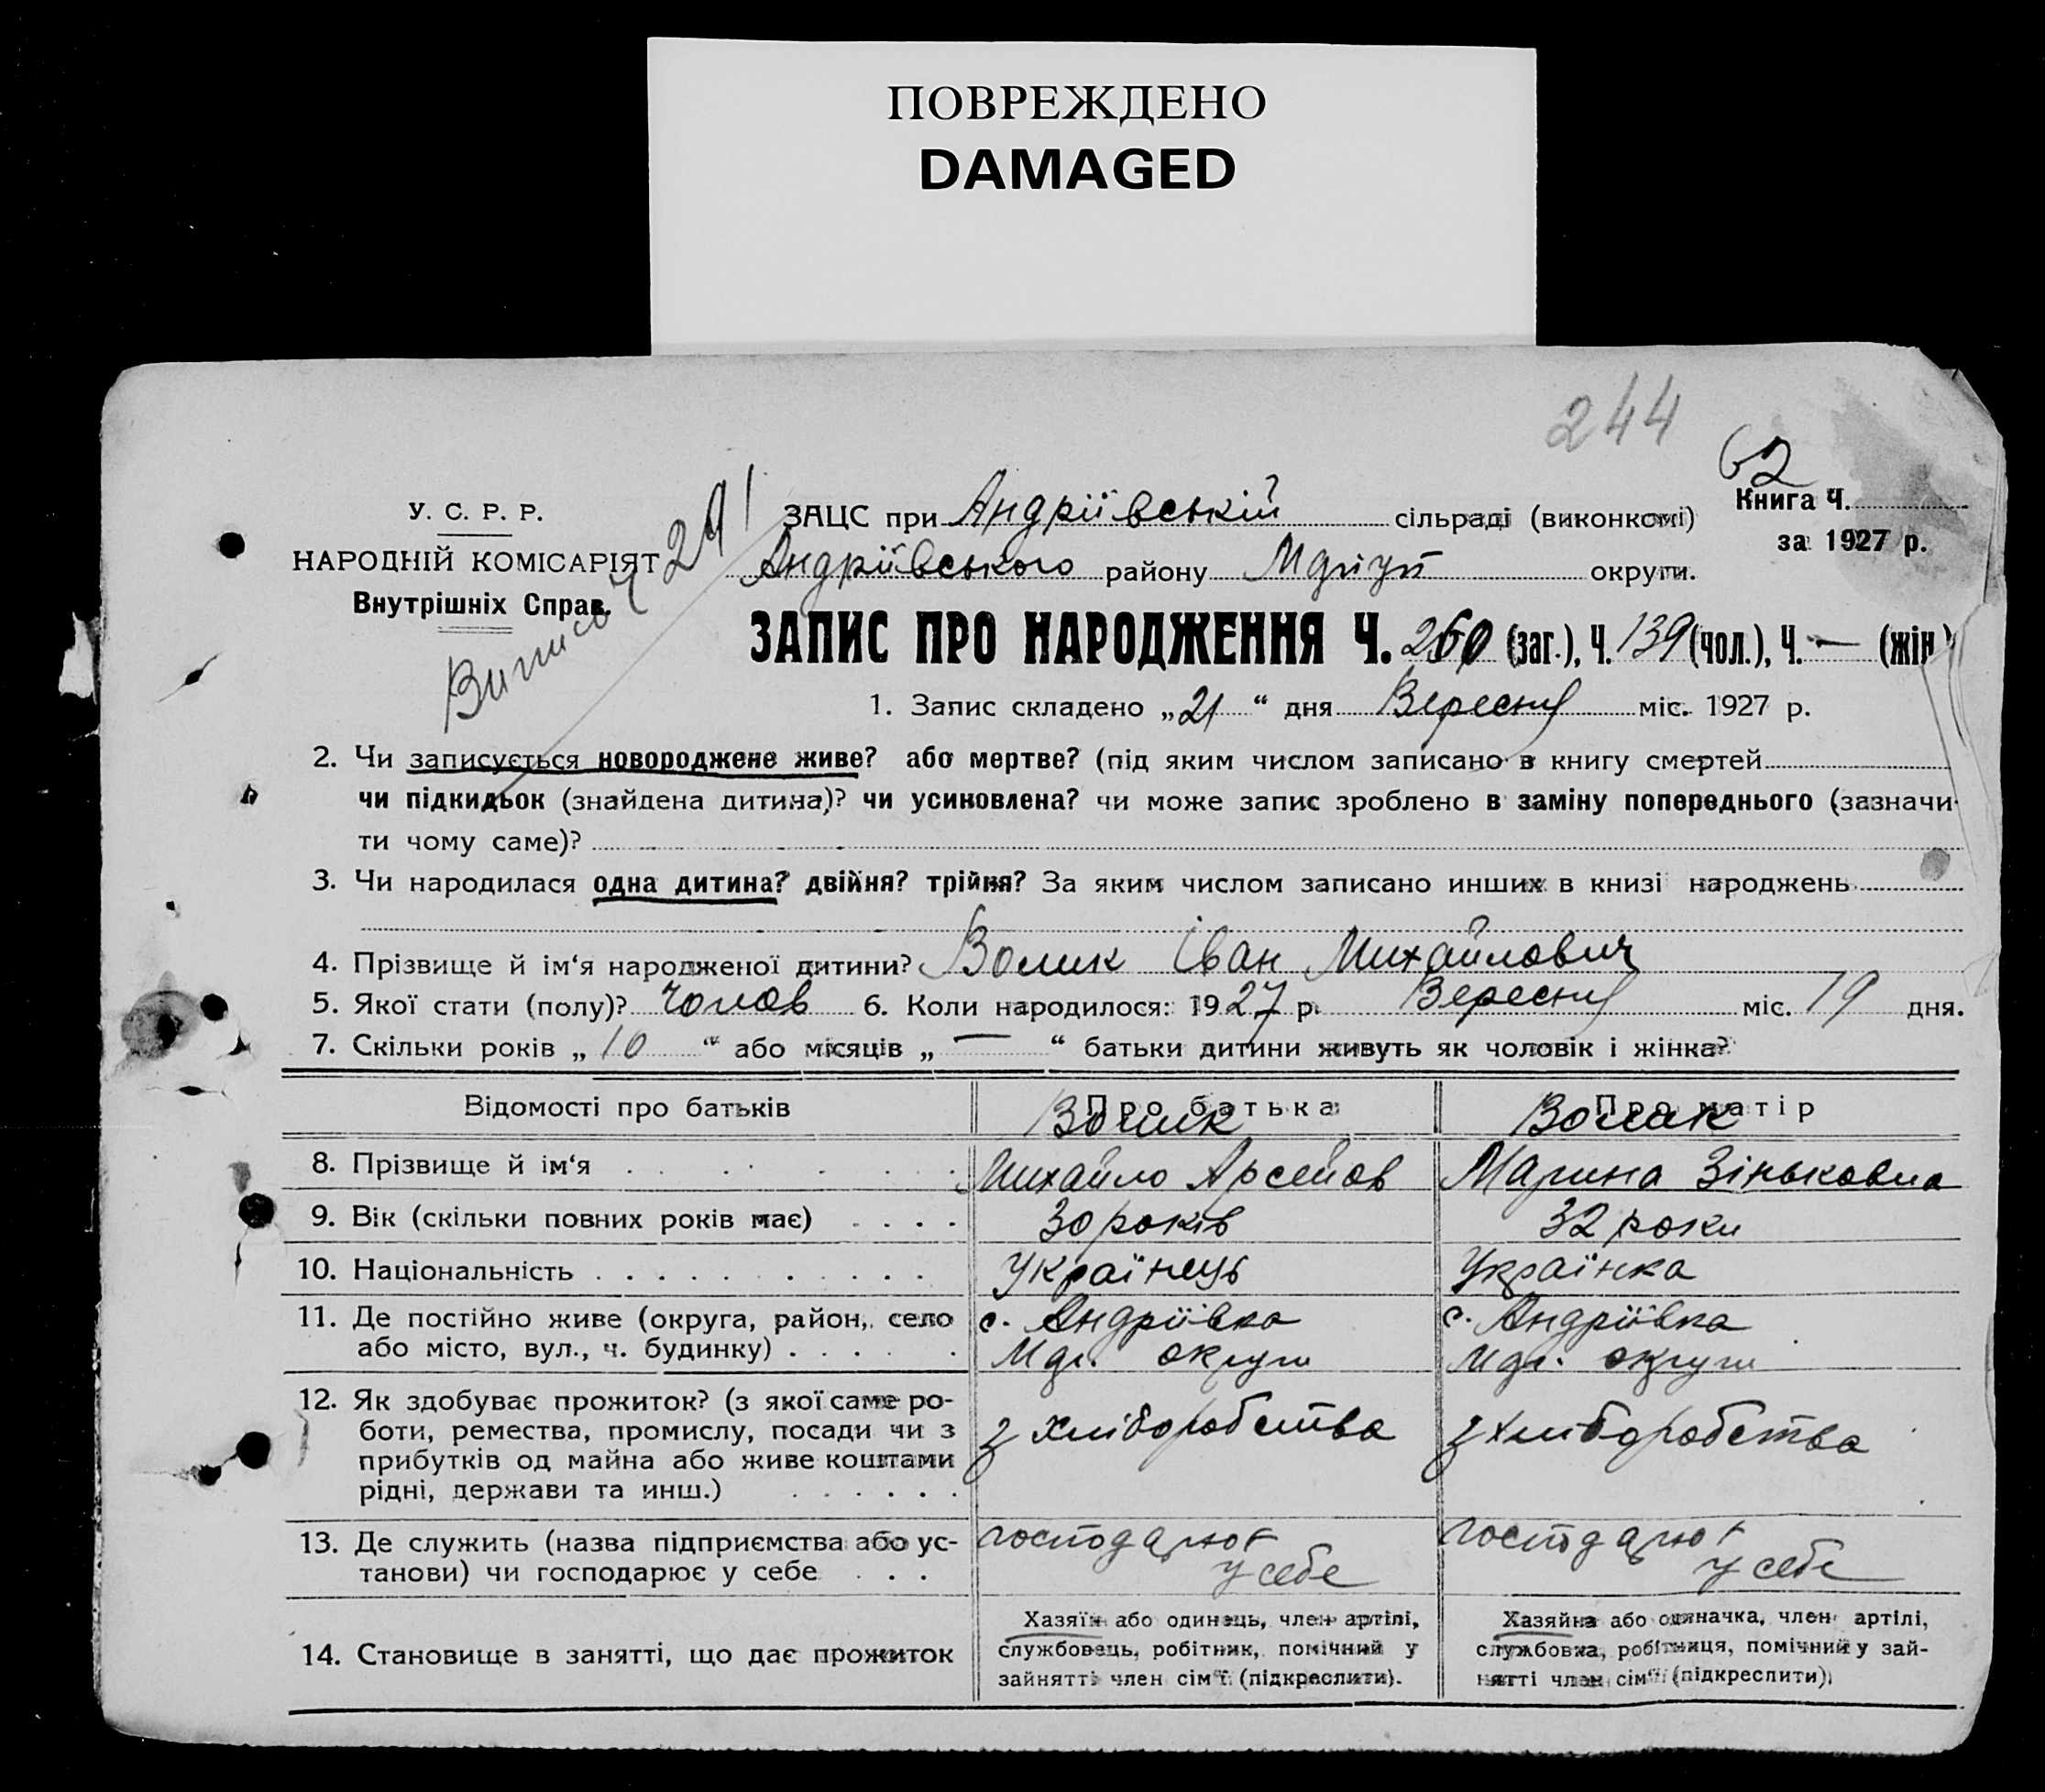 ПОВРЕЖДЕНО
DAMAGED
244
62
У. С. Р. Р.
НАРОДНІЙ КОМІСАРІЯТ
Внутрішніх Справ.
Випись Ч 291
ЗАЦС при Андріївській сільраді (виконкомі)
Книга Ч.
за 1927 р.
Андріївського району округи.
ЗАПИС ПРО НАРОДЖЕННЯ Ч. 260 (заг.), Ч. 139 (чол.), Ч. — (жін.)
1. Запис складено „21“ дня Вересня міс. 1927 р.
2. Чи записується новороджене живе? або мертве? (під яким числом записано в книгу смертей
чи підкидьок (знайдена дитина)? чи усиновлена? чи може запис зроблено в заміну попереднього (зазначи-
ти чому саме)?
3. Чи народилася одна дитина? двійня? трійня? За яким числом записано инших в книзі народжень
4. Прізвище й ім‘я народженої дитини? Волик Іван Михайлович
5. Якої стати (полу)? Чолов 6. Коли народилося: 1927 р. Вересня міс. 19 дня.
7. Скільки років „10“ або місяців „—“ батьки дитини живуть як чоловік і жінка?
Відомості про батьків Про батька Про матір
Волик Волик
8. Прізвище й ім‘я Михайло Арсенов Марина Зіньковна
9. Вік (скільки повних років має) 30 років 32 роки
10. Національність Українець Українка
11. Де постійно живе (округа, район, село с. Андріївка с. Андріївка
або місто, вул., ч. будинку) округи округи
12. Як здобуває прожиток? (з якої саме ро-
боти, ремества, промислу, посади чи з з хліборобства з хліборобства
прибутків од майна або живе коштами
рідні, держави та инш.)
13. Де служить (назва підприємства або ус- господарює господарює
танови) чи господарює у себе у себе у себе
Хазяїн або одинець, член артілі, Хазяйна або одиначка, член артілі,
14. Становище в занятті, що дає прожиток службовець, робітник, помічний у службовка, робітниця, помічний у зай-
зайнятті член сім“ї (підкреслити). нятті член сім“ї (підкреслити)